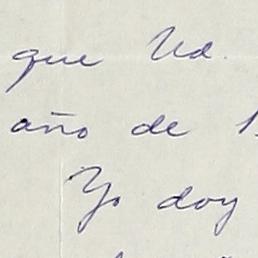 que Ud.
año de
Yo doy